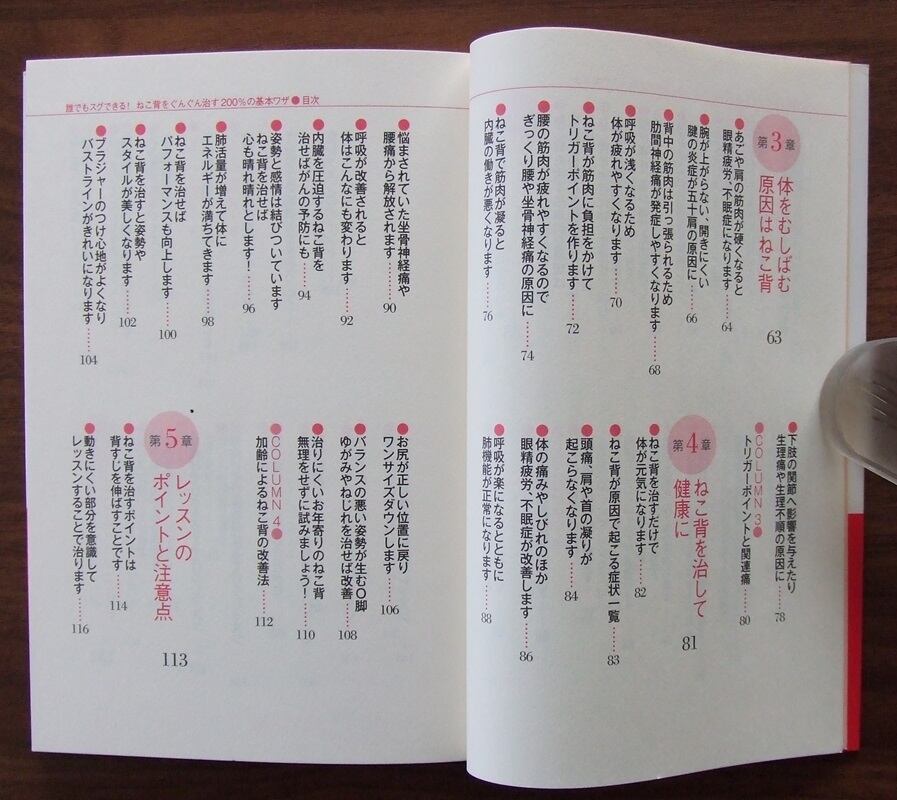 第3章
体をむしばむ
原因はねこ背
63
●あごや肩の筋肉が硬くなると
眼精疲労、不眠症になります……64
●腕が上がらない、開きにくい
腱の炎症が五十肩の原因に……66
●背中の筋肉は引っ張られるため
肋間神経痛が発症しやすくなります……68
●呼吸が浅くなるため
体が疲れやすくなります……70
●ねこ背が筋肉に負担をかけて
トリガーポイントを作ります……72
●腰の筋肉が疲れやすくなるので
ぎっくり腰や坐骨神経痛の原因に……74
●ねこ背で筋肉が凝ると
内臓の働きが悪くなります……76
●下肢の関節へ影響を与えたり
生理痛や生理不順の原因に……78
●COLUMN3●
トリガーポイントと関連痛……80
第4章
ねこ背を治して
健康に
81
●ねこ背を治すだけで
体が元気になります……82
●ねこ背が原因で起こる症状一覧……83
●頭痛、肩や首の凝りが
起こらなくなります……84
●体の痛みやしびれのほか
眼精疲労、不眠症が改善します……86
●呼吸が楽になるとともに
肺機能が正常になります……88
誰でもスグできる! ねこ背をぐんぐん治す200%の基本ワザ●目次
●悩まされていた坐骨神経痛や
腰痛から解放されます……90
●呼吸が改善されると
体はこんなにも変わります……92
●内臓を圧迫するねこ背を
治せばがんの予防にも……94
●姿勢と感情は結びついています
ねこ背を治せば
心も晴れ晴れとします!……96
●肺活量が増えて体に
エネルギーが満ちてきます……98
●ねこ背を治せば
パフォーマンスも向上します……100
●ねこ背を治すと姿勢や
スタイルが美しくなります……102
●ブラジャーのつけ心地がよくなり
バストラインがきれいになります……104
●お尻が正しい位置に戻り
ワンサイズダウンします……106
●バランスの悪い姿勢が生むO脚
ゆがみやねじれを治せば改善……108
●治りにくいお年寄りのねこ背
無理をせずに試みましょう!……110
●COLUMN4●
加齢によるねこ背の改善法……112
第5章
レッスンの
ポイントと注意点
113
●ねこ背を治すポイントは
背すじを伸ばすことです……114
●動きにくい部分を意識して
レッスンすることで治ります……116